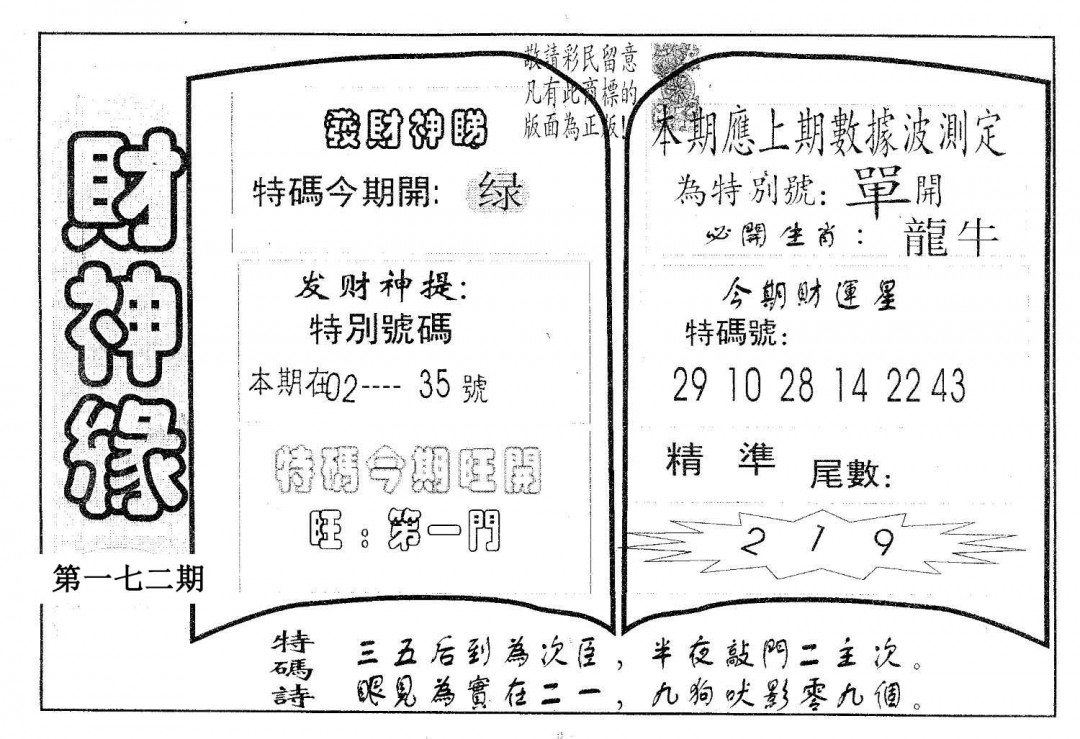 財神緣
第一七二期
敬請彩民留意
凡有此商標的
版面為正版!
發財神賜
特碼今期開: 绿
发财神提:
特別號碼
本期在02----35號
特碼今期旺開
旺:第一門
本期應上期數據波測定
為特別號:單開
必開生肖:龍牛
今期財運星
特碼號:
29 10 28 14 22 43
精準 尾數:
2 1 9
特碼詩
三五后到為次臣,半夜敲門二主次。
眼見為實在二一,九狗吠影零九個。